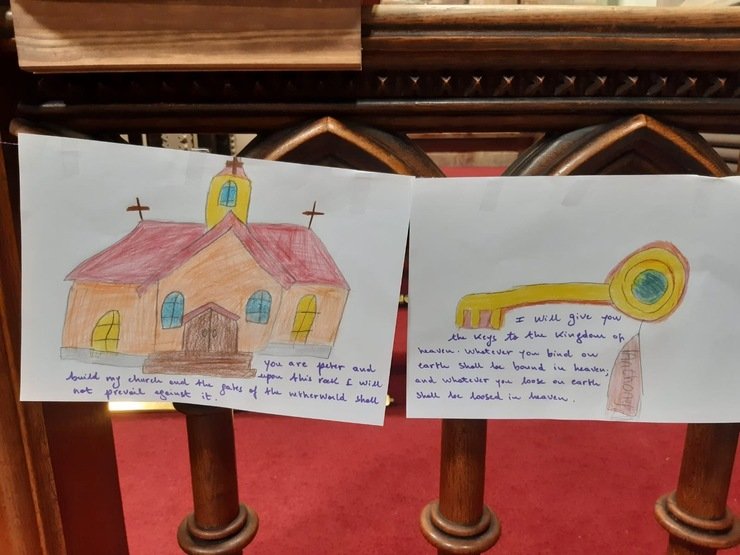 you are peter and
upon this rock I will
build my church and the gates of the netherworld shall
not prevail against it.
I will give you
the keys to the Kingdom of
heaven. Whatever you bind on
earth shall be bound in heaven;
and whatever you loose on earth
shall be loosed in heaven.
Anthony